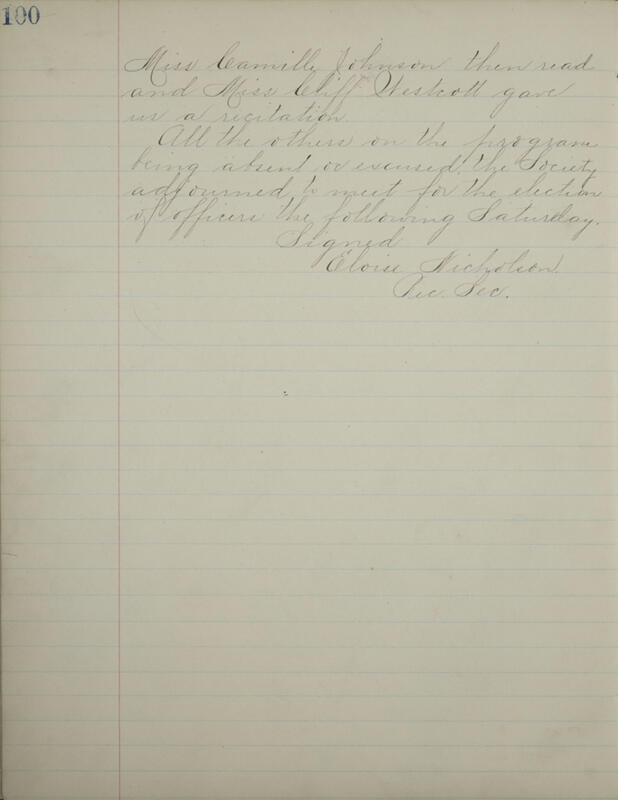 100
Miss Camille Johnson then read
and Miss Cliff Westcott gave
us a recitation.
All the others on the program
being absent or excused, the Society
adjourned to meet for the election
of officers the following Saturday.
Signed
Eloise Nicholson
Rec. Sec.